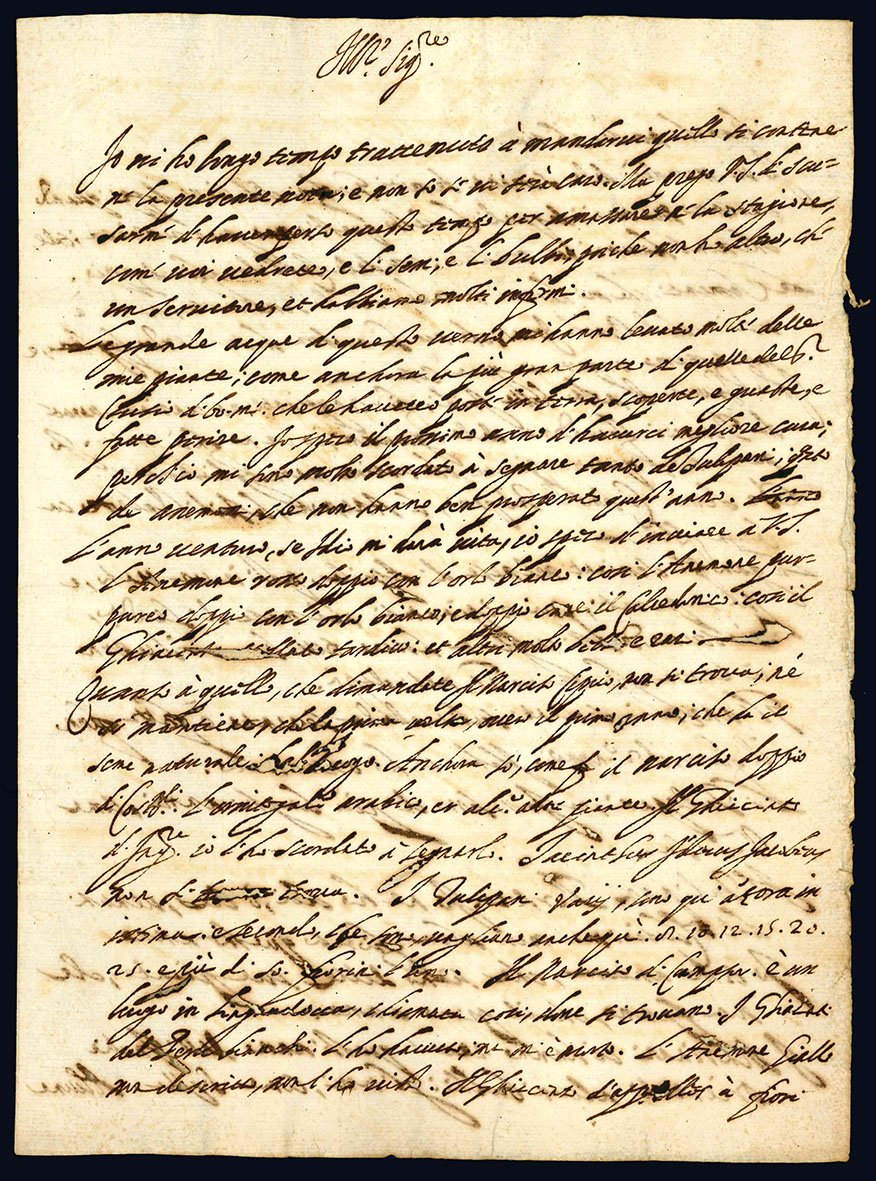 Ill.re Sig.re
Io mi ho longo tempo trattenuto à mandarvi quello si contene
ne la presente nota; e non so se vi sarà caro. Ma prego V.S. di scu-
sarmi d'haver perso questo tempo per amassare ne la stagione,
come voi vedrete, e li semi, e li bulbi, poiche non ho altro, ch'
un servitore, et habbiamo molti infermi.
Le grande acque di questo verno mi hanno levato molte delle
mie piante; come anchora la più gran parte di quelle del S.r
Clusio di bo. me. che le haveteo poste in terra, scoperte, e guaste, e
fatte perire. Io spero il prossimo anno d'haverci megliore cura;
perche io mi sono molto scordato à segnare tanto de Tulipani,
de anemoni, che non hanno ben prosperato quest'anno.
L'anno venturo, se Idio mi darà vita, io spero d'inviare a V.S.
l'Anemone rosso doppio con l'orlo bianco: così l'Anemone pur-
pureo doppio con l'orlo bianco, e doppio come il Calcedonico: così il
tardivo: et altri molto belli e rari.
Quanto à quello, che dimandate Il Narciso non si trova; né
si mantiene, che la prima volta, over il primo anno; che da il
seme naturale luogo. Anchora il narciso doppio
di l'ornitogalo arabico, et alc.e altre piante. Il Ghiacinto
io l'ho scordato à segnarlo. Iacinthus
non si trova. I Tulipani Varij, sono qui àcora in
e secondo, che sono, vagliono anche quì 8. 10. 12. 15. 20.
25. e più di 50. fiorin l'uno. Il Narciso di è un
luogo in Linguadocca, chiamato così, dove si trovano. I Ghiacinti
del bianchi. l'ho havuto, ma m'è morto. L'Anemone Giallo
non l'ho visto. Il Ghiacinto à fiori